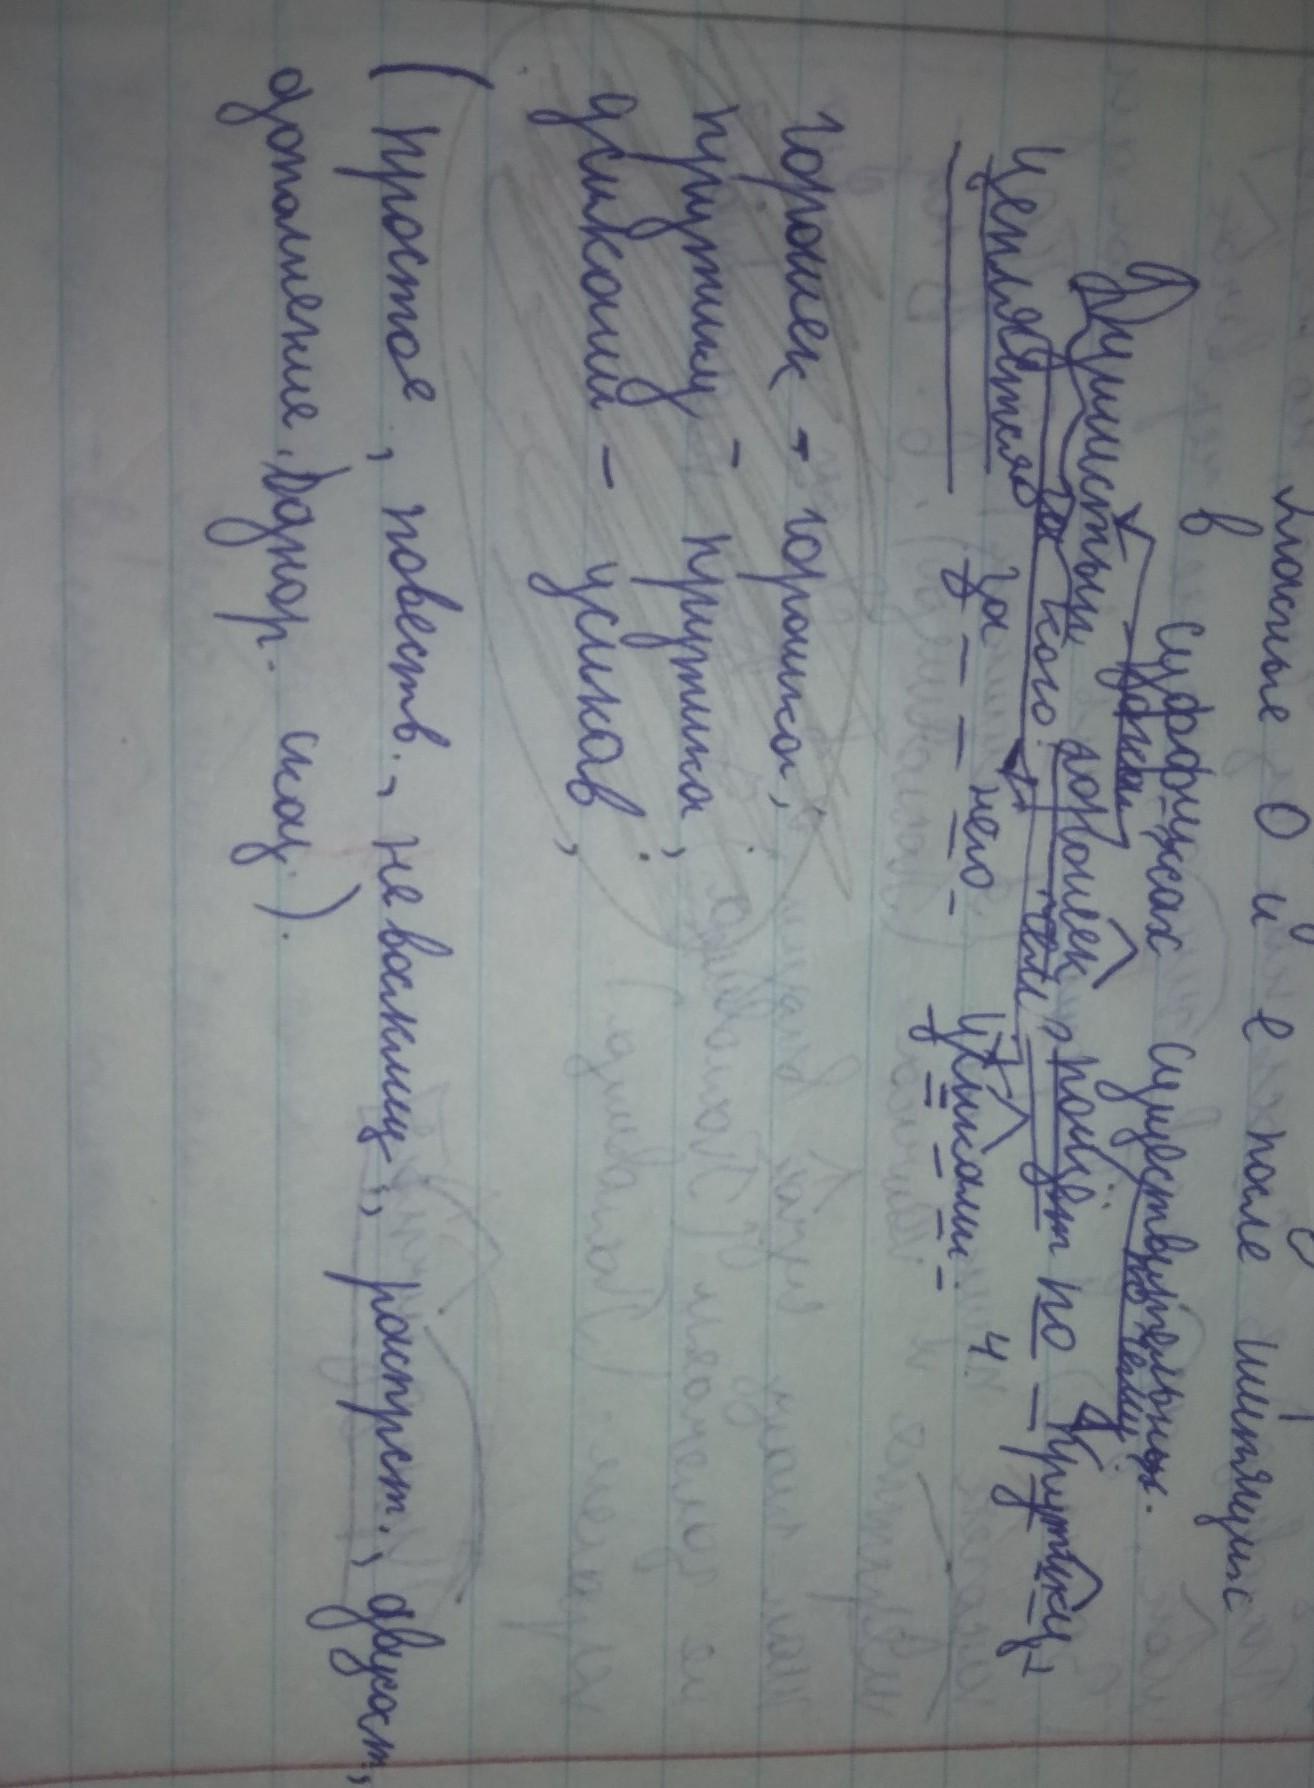 Гласные О и е после шипящих
в суффиксах существительных.
какой? по чему?
Душистый горошек ползёт по прутику,
за кого? чем?
Цепляется за него усиками. 4
горошек - горошка,
прутику - прутика,
усиками - усиков,
(простое, повеств., невосклиц., распрст., двусост.,
дополнение. Однор. сказ.).